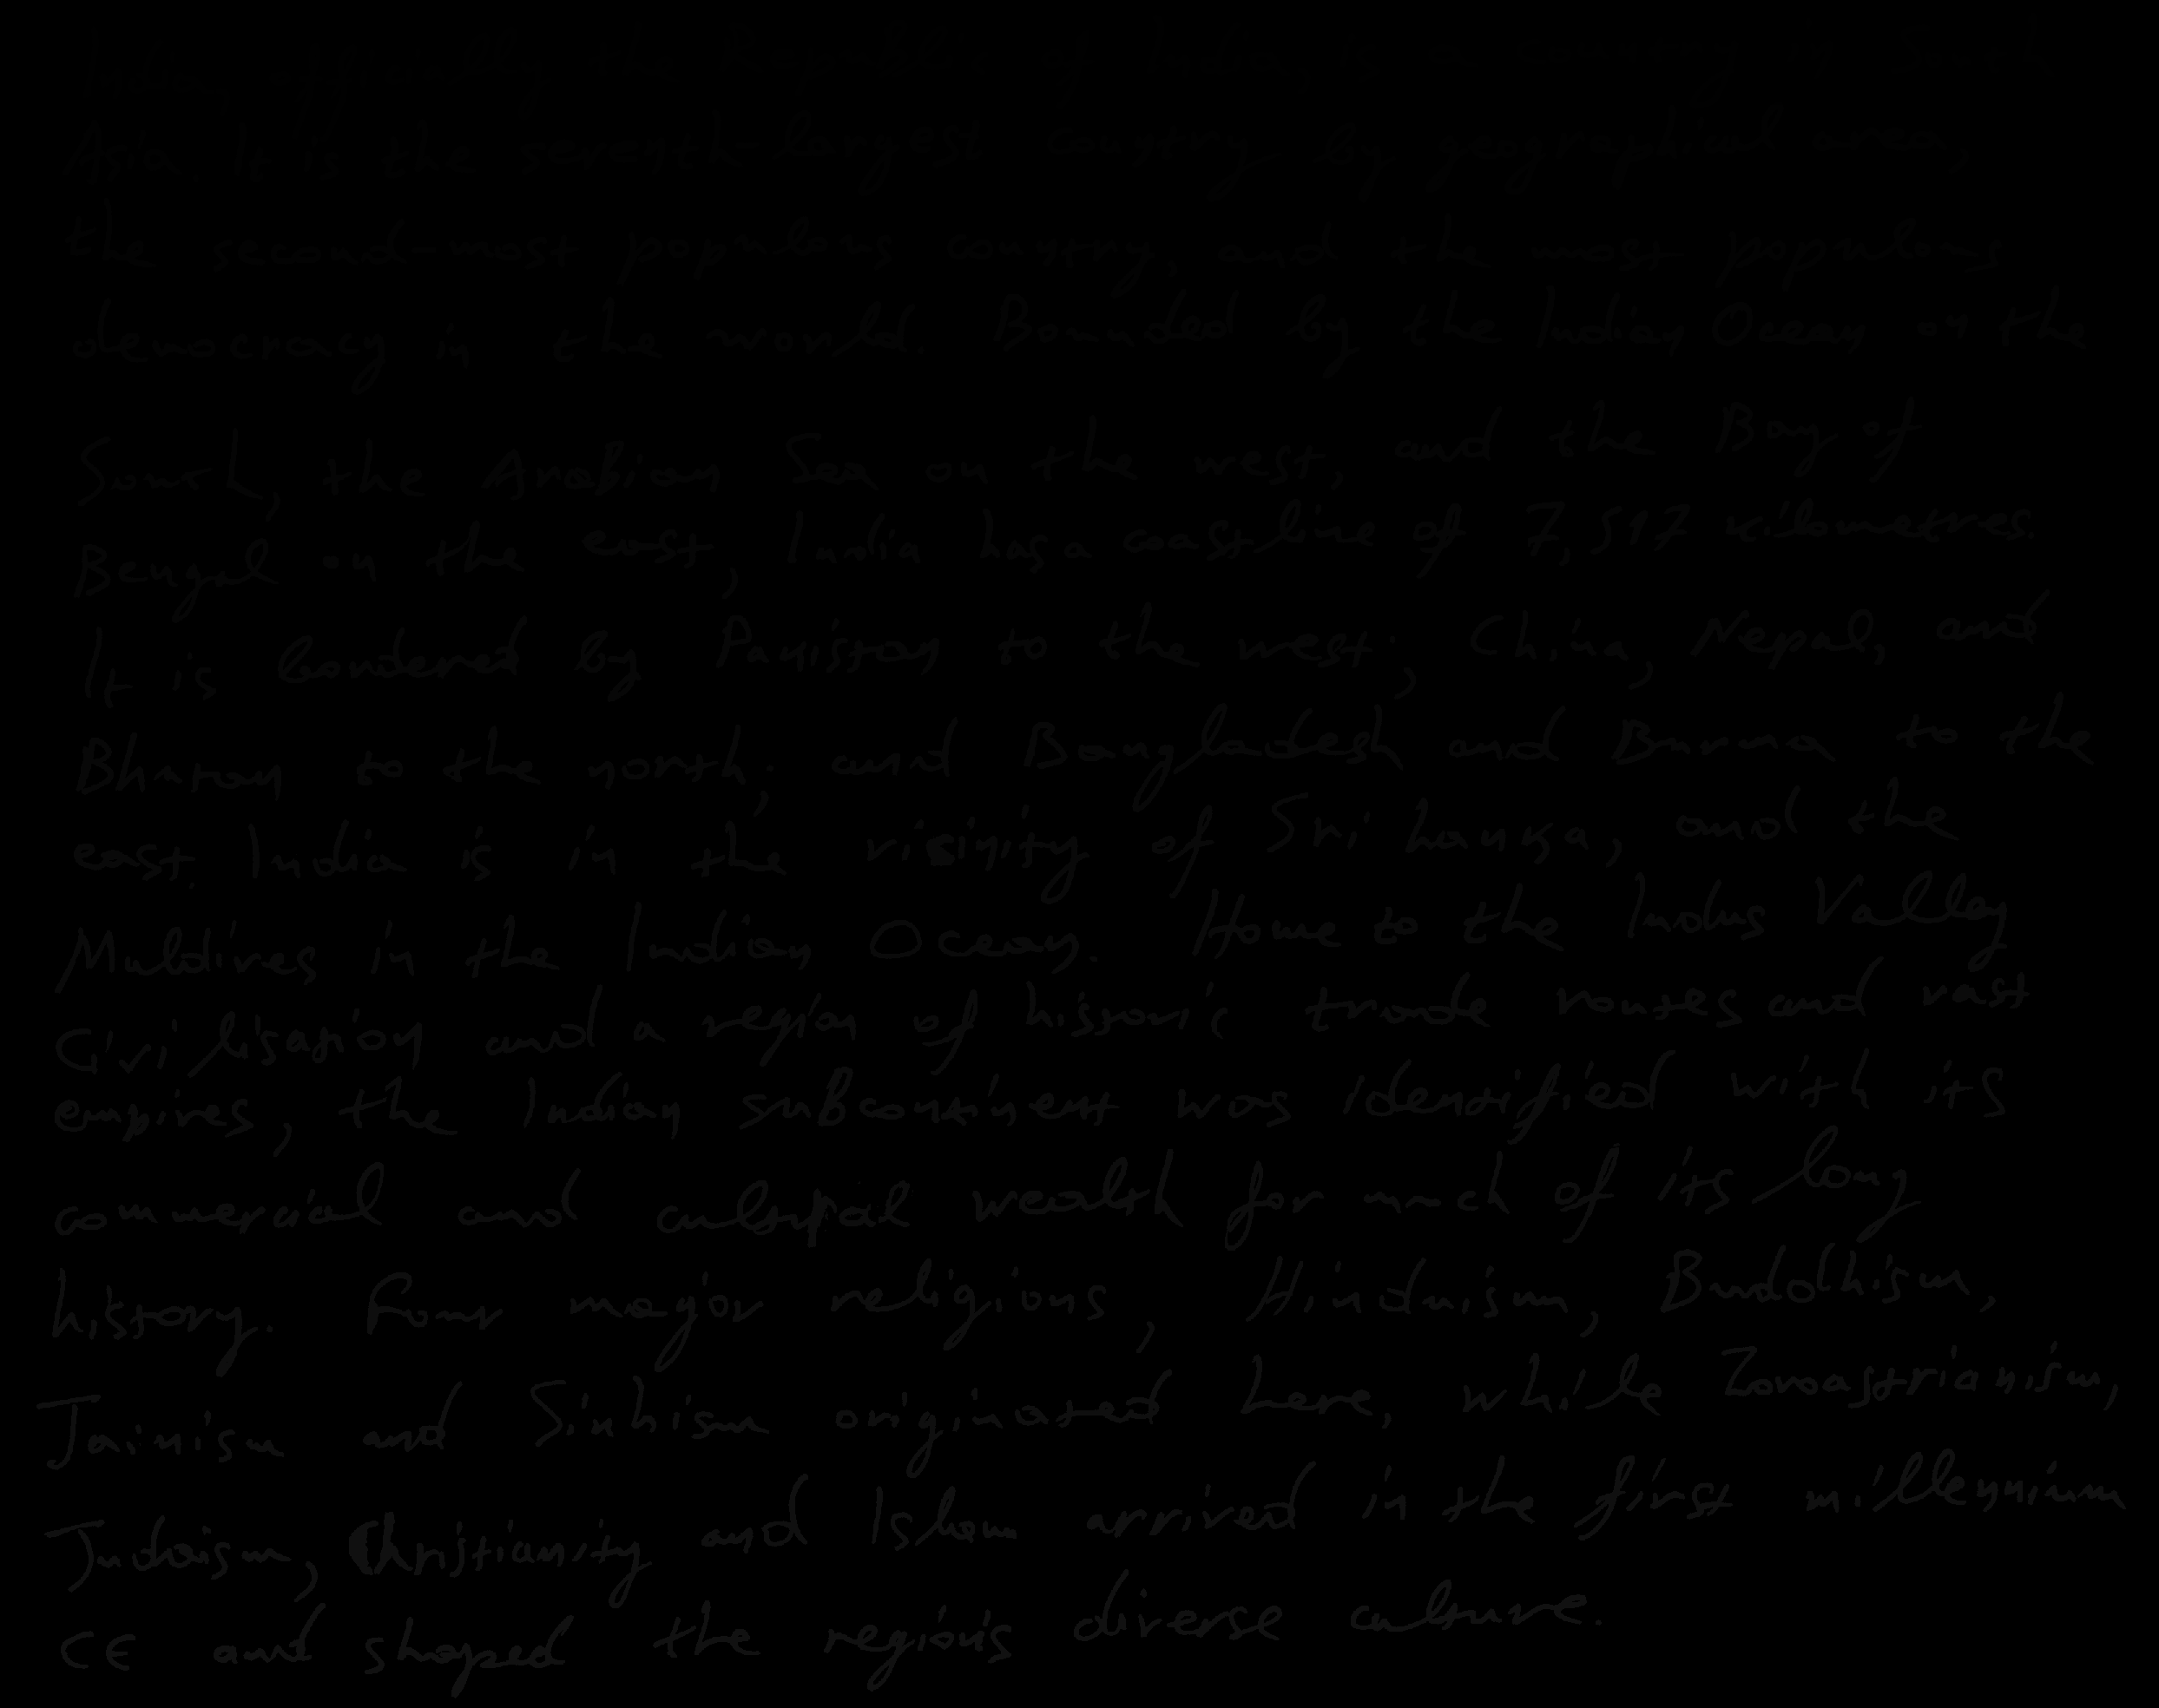 India, officially the Republic of India, is a country in South
Asia. It is the seventh-largest country by geographical area,
the second-most populous country, and the most populous
democracy in the world. Bounded by the Indian Ocean on the
South, the Arabian Sea on the west, and the Bay of
Bengal on the east, India has a coastline of 7,517 kilometres.
It is bordered by Pakistan to the west; China, Nepal, and
Bhutan to the north; and Bangladesh and Burma to the
east. India is in the vicinity of Sri Lanka, and the
Maldives in the Indian Ocean. Home to the Indus Valley
Civilisation and a region of historic trade routes and vast
empires, the Indian subcontinent was identified with its
commercial and cultural wealth for much of its long
history. Four major religions, Hinduism, Buddhism,
Jainism and Sikhism originated here, while Zoroastrianism,
Judaism, Christianity and Islam arrived in the first millennium
CE and shaped the region's diverse culture.